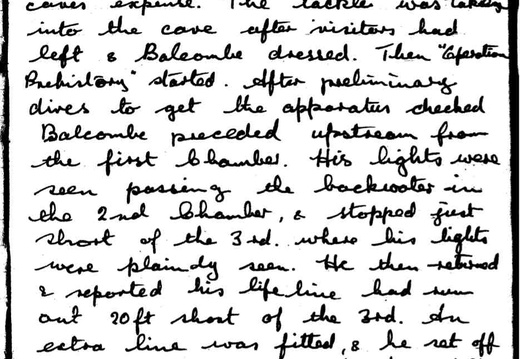 caves expense. The tackle was taken
into the cave after visitors had
left & Balcombe dressed. Then "Operation
Prehistory" started. After preliminary
dives to get the apparatus checked
Balcombe preceded upstream from
the first Chamber. His lights were
seen passing the backwater in
the 2nd Chamber, & stopped just
short of the 3rd. where his lights
were plaindy seen. He then returned
& reported his life line had run
out 20ft short of the 3rd. An
extra line was fitted, & he set off